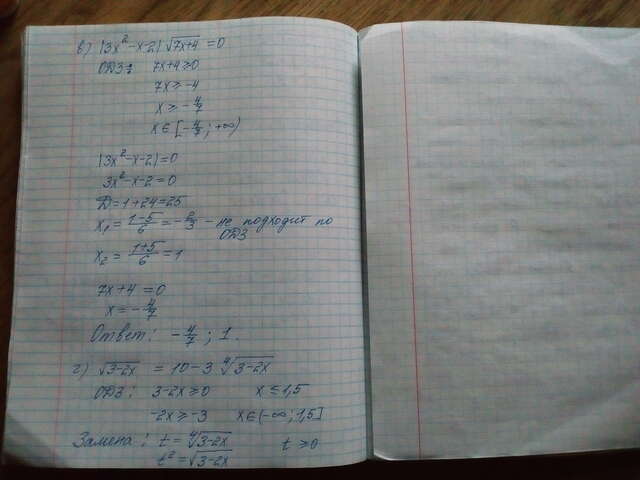 в) |3x²-x-2|√7x+4 = 0
ОДЗ: 7x+4≥0
7x≥-4
x≥-4/7
x∈[-4/7; +∞)
|3x²-x-2|=0
3x²-x-2=0
D=1+24=25
x₁=(1-5)/6=-2/3 - не подходит по
ОДЗ
x₂=(1+5)/6=1
7x+4=0
x=-4/7
Ответ: -4/7; 1.
г) √3-2x = 10-3 ⁴√3-2x
ОДЗ: 3-2x≥0 x≤1,5
-2x≥-3 x∈(-∞; 1,5]
Замена: t=⁴√3-2x t≥0
t²=√3-2x